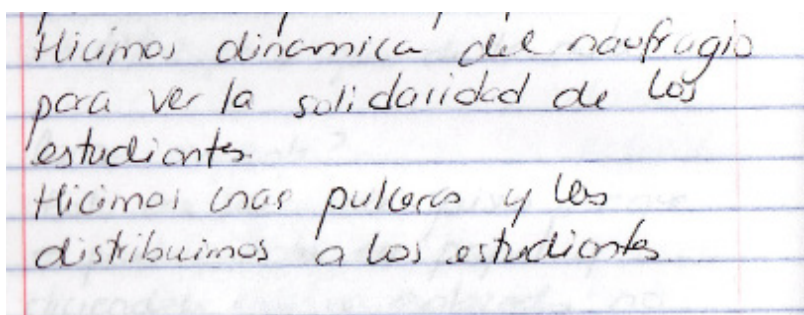 Hicimos dinamica del naufragio
para ver la solidaridad de los
estudiantes.
Hicimos unas pulceras y los
distribuimos a los estudiantes.